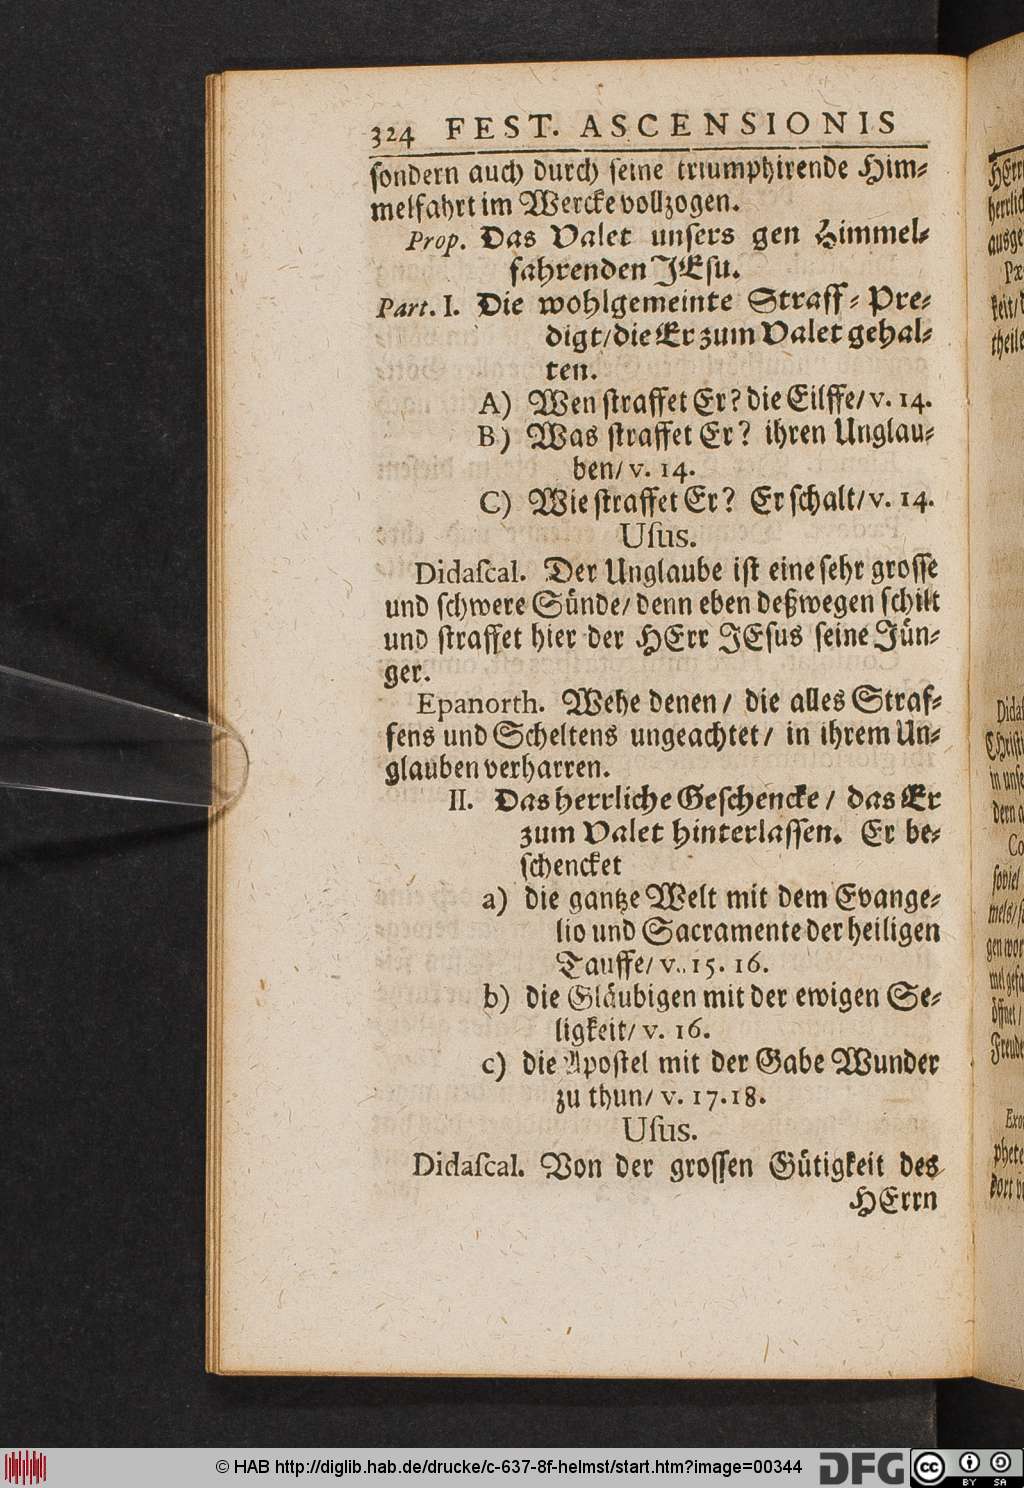 324 FEST. ASCENSIONIS
sondern auch durch seine triumphirende Him-
melfahrt im Wercke vollzogen.
Prop. Das Valet unsers gen Himmel-
fahrenden JEsu.
Part. I. Die wohlgemeinte Straff-Pre-
digt/ die Er zum Valet gehal-
ten.
A) Wen straffet Er? die Eilffe/ v. 14.
B) Was straffet Er? ihren Unglau-
ben/ v. 14.
C) Wie straffet Er? Er schalt/ v. 14.
Uſus.
Didaſcal. Der Unglaube ist eine sehr grosse
und schwere Sünde/ denn eben deßwegen schilt
und straffet hier der HErr JEsus seine Jün-
ger.
Epanorth. Wehe denen/ die alles Straf-
fens und Scheltens ungeachtet/ in ihrem Un-
glauben verharren.
II. Das herrliche Geschencke/ das Er
zum Valet hinterlassen. Er be-
schencket
a) die gantze Welt mit dem Evange-
lio und Sacramente der heiligen
Tauffe/ v. 15. 16.
b) die Gläubigen mit der ewigen Se-
ligkeit/ v. 16.
c) die Apostel mit der Gabe Wunder
zu thun/ v. 17. 18.
Uſus.
Didaſcal. Von der grossen Gütigkeit des
HErrn
© HAB http://diglib.hab.de/drucke/c-637-8f-helmst/start.htm?image=00344
DFG
cc BY SA